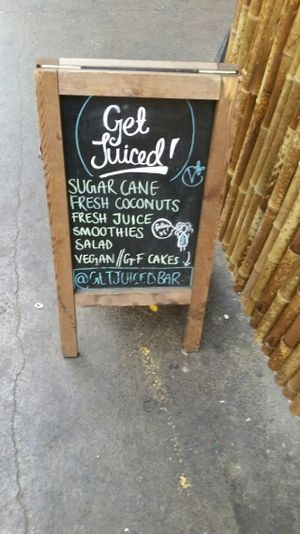 Get
Juiced!
SUGAR CANE
FRESH COCONUTS
FRESH JUICE
SMOOTHIES
SALAD
VEGAN//G-F CAKES
@GETJUICEDBAR